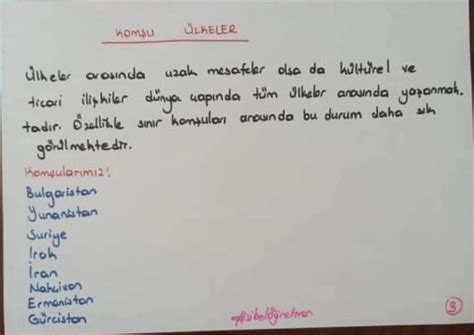 KOMŞU ÜLKELER
Ülkeler arasında uzak mesafeler olsa da kültürel ve
ticari ilişkiler dünya çapında tüm ülkeler arasında yaşanmak.
tadır. Özellikle sınır komşuları arasında bu durum daha sık
görülmektedir.
Komşularımız:
Bulgaristan
Yunanistan
Suriye
Irak
İran
Nahcivan
Ermenistan
Gürcistan
#sibelöğretmen
3